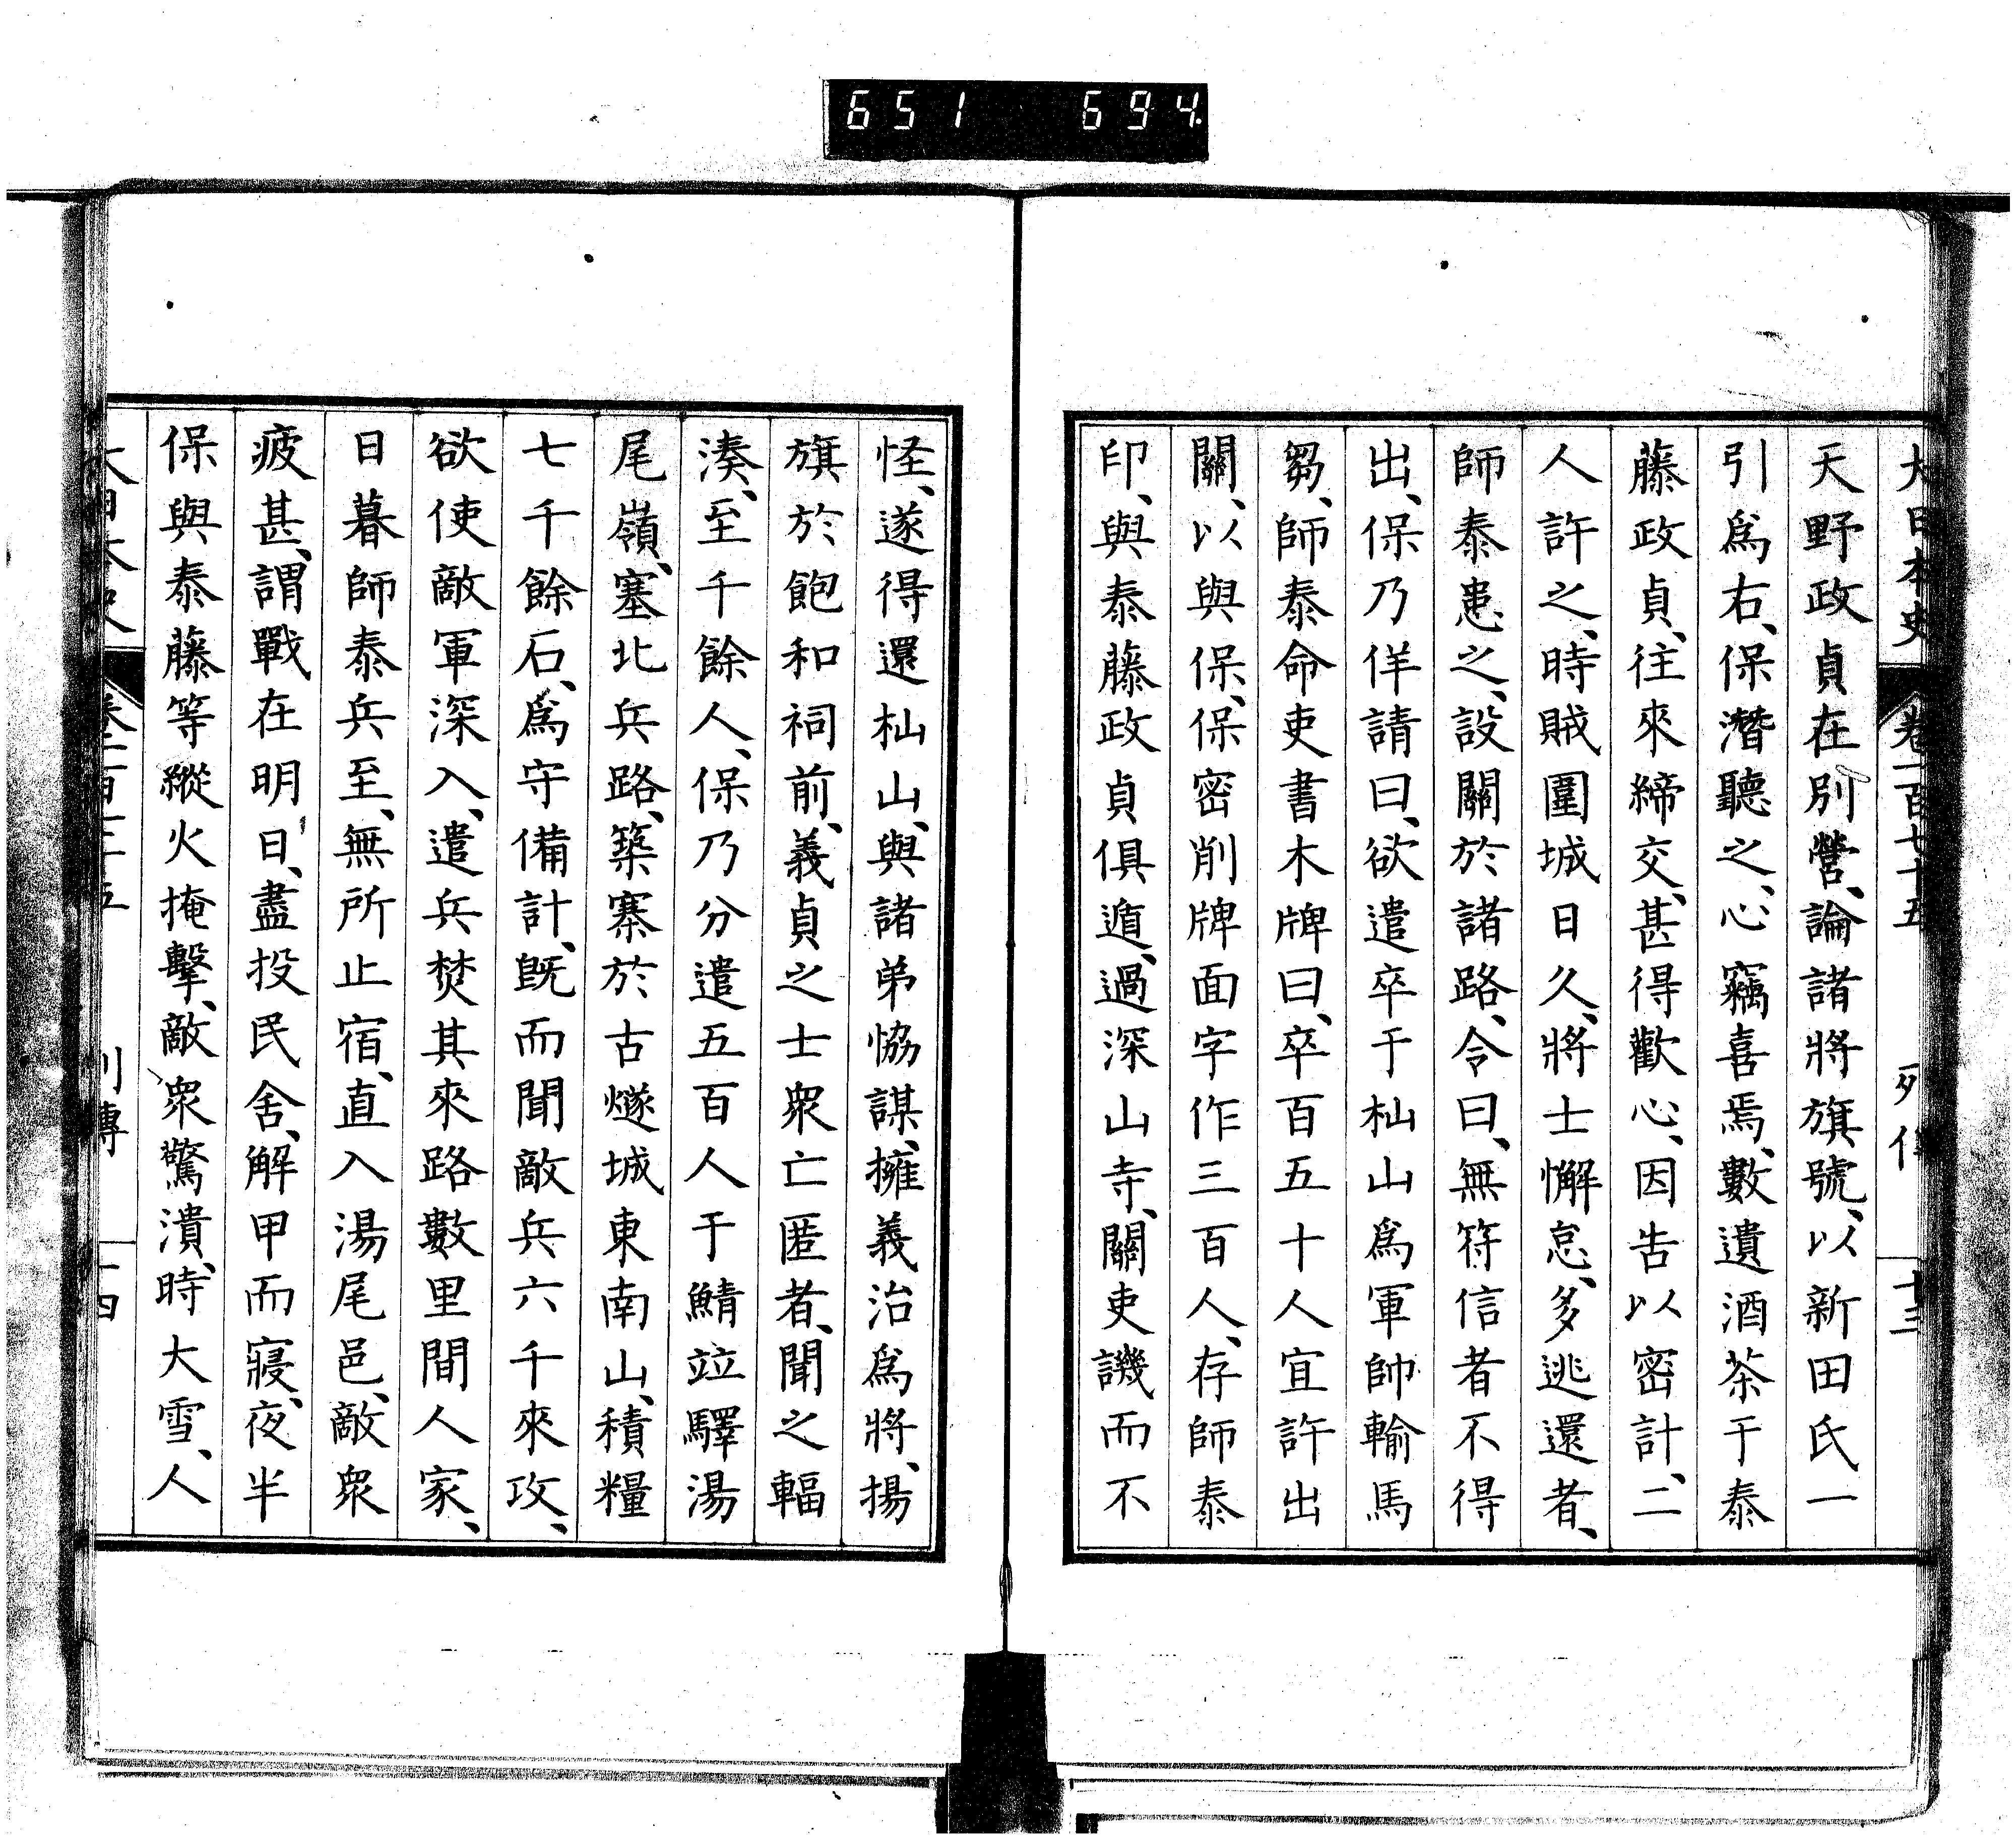 651 694
大日本史 卷一百七十五 列傳 十三
天野政貞在別營、論諸將旗號、以新田氏一
引爲右、保潛聽之、心竊喜焉、數遺酒茶于泰
藤政貞、往來締交、甚得歡心、因告以密計、二
人許之、時賊圍城日久、將士懈怠、多逃還者、
師泰患之、設關於諸路、令曰、無符信者不得
出、保乃佯請曰、欲遣卒于杣山爲軍帥輸馬
芻、師泰命吏書木牌曰、卒百五十人宜許出
關、以與保、保密削牌面字作三百人、存師泰
印、與泰藤政貞俱遁、過深山寺、關吏譏而不
怪、遂得還杣山、與諸弟恊謀、擁義治爲將、揚
旗於飽和祠前、義貞之士衆亡匿者、聞之輻
湊、至千餘人、保乃分遣五百人于鯖竝驛湯
尾嶺、塞北兵路、築寨於古燧城東南山、積糧
七千餘石、爲守備計、旣而聞敵兵六千來攻、
欲使敵軍深入、遣兵焚其來路數里間人家、
日暮師泰兵至、無所止宿、直入湯尾邑、敵衆
疲甚、謂戰在明日、盡投民舍、解甲而寢、夜半
保與泰藤等縱火掩擊、敵衆驚潰、時大雪、人